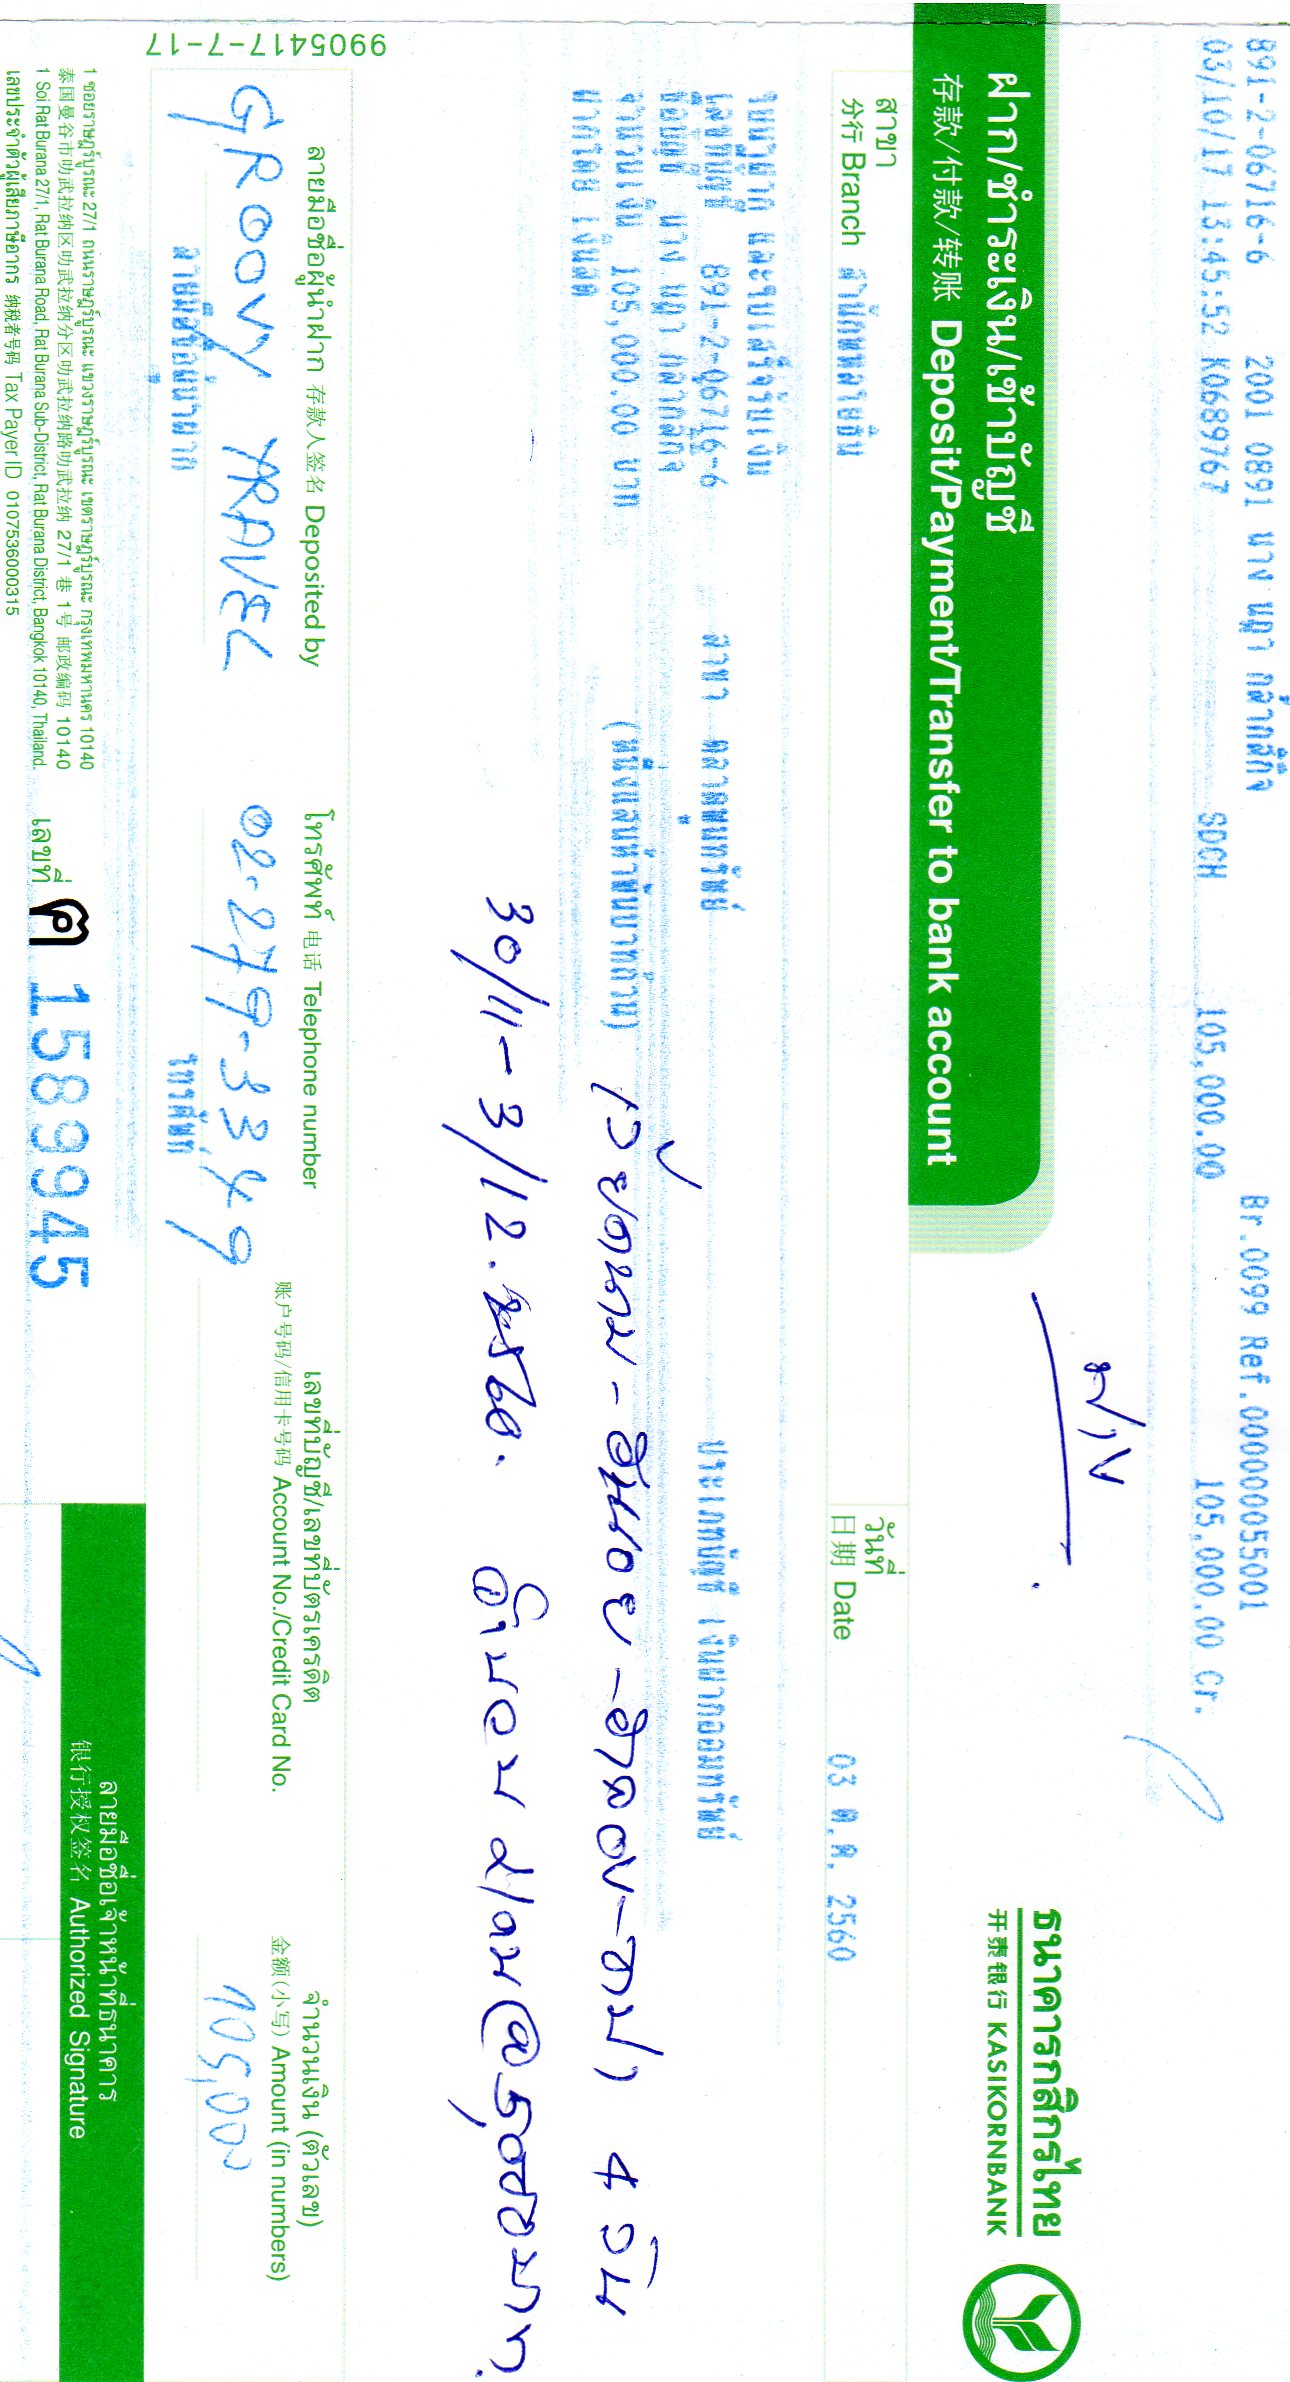 891-2-06716-6 2001 0891 นาง นฎา กล้ากสิกิจ Br.0099 Ref.000000055001
03/10/17 13:45:52 K0689767 SDCH 105,000.00 105,000.00 Cr.
ธนาคารกสิกรไทย
开泰银行 KASIKORNBANK
ฝาก/ชำระเงิน/เข้าบัญชี
存款/付款/转账 Deposit/Payment/Transfer to bank account
สาขา
分行 Branch สำนักพหลโยธิน
วันที่
日期 Date 03 ต.ค. 2560
ใบนำฝาก และใบเสร็จรับเงิน
เลขที่บัญชี 891-2-06716-6 สาขา ตลาดพูนทรัพย์ ประเภทบัญชี เงินฝากออมทรัพย์
ชื่อบัญชี นาง นฎา กล้ากสิกิจ
จำนวนเงิน 105,000.00 บาท (หนึ่งแสนห้าพันบาทถ้วน)
ฝากโดย เงินสด
เวียดนาม-ฮานอย-ฮาลอง-ซาปา 4 วัน
30/11-3/12. 2560. จำนวน 21คน @5,000บาท.
ลายมือชื่อผู้นำฝาก 存款人签名 Deposited by
GROOVY TRAVEL
ลายมือชื่อผู้นำฝาก
โทรศัพท์ 电话 Telephone number
02-279-3349
โทรศัพท์
เลขที่บัญชี/เลขที่บัตรเครดิต
账户号码/信用卡号码 Account No./Credit Card No.
จำนวนเงิน (ตัวเลข)
金额(小写) Amount (in numbers)
105,000
9905417-7-17
1 ซอยราษฎร์บูรณะ 27/1 ถนนราษฎร์บูรณะ แขวงราษฎร์บูรณะ เขตราษฎร์บูรณะ กรุงเทพมหานคร 10140
泰国曼谷市叻武拉纳区叻武拉纳分区叻武拉纳路叻武拉纳 27/1 巷 1号 邮政编码 10140
1 Soi Rat Burana 27/1, Rat Burana Road, Rat Burana Sub-District, Rat Burana District, Bangkok 10140, Thailand.
เลขประจำตัวผู้เสียภาษีอากร 纳税者号码 Tax Payer ID 0107536000315
เลขที่ ฅ 1589945
ลายมือชื่อเจ้าหน้าที่ธนาคาร
银行授权签名 Authorized Signature